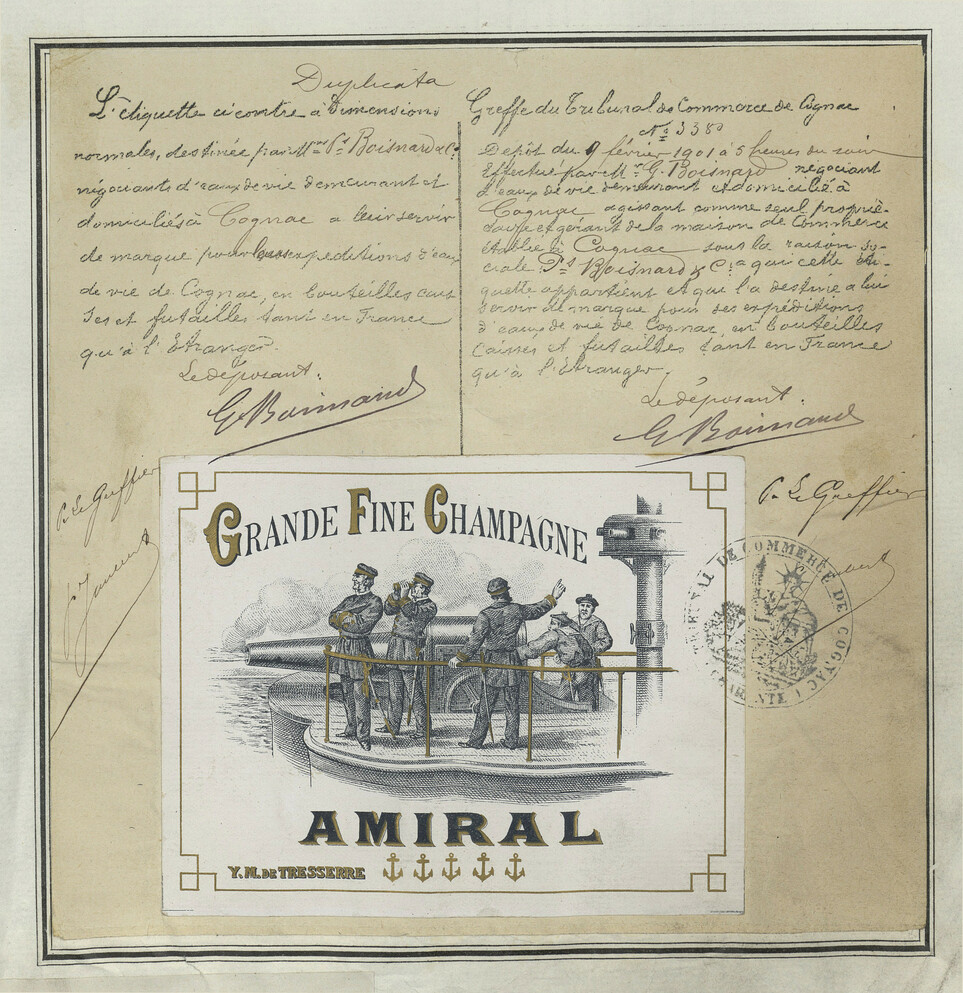 Duplicata
L'étiquette ci contre à Dimensions
normales, destinée par M.rs P.s Boisnard & C.ie
négociants d'eaux de vie demeurant et
domiciliés à Cognac a leur servir
de marque pour leurs expeditions d'eaux
de vie de Cognac, en bouteilles cais
ses et futailles tant en France
qu'à l'Etranger.
Le déposant:
G Boisnard
P. Le Greffier
Greffe du Tribunal de Commerce de Cognac
N° 338
Depôt du 9 février 1901 à 5 heures du soir
Effectué par M.r G. Boisnard négociant
d'eaux de vie demeurant et domicilié à
Cognac agissant comme seul proprié-
taire et gérant de la maison de Commerce
établie à Cognac sous la raison so-
ciale P.s Boisnard & C.ie a qui cette éti-
quette appartient et qui l'a destiné a lui
servir de marque pour ses expéditions
d'eaux de vie de Cognac, en bouteilles
Caisses et futailles tant en France
qu'à l'Etranger.
Le déposant.
G Boisnard
P. Le Greffier
TRIBUNAL DE COMMERCE DE COGNAC
CHARENTE
GRANDE FINE CHAMPAGNE
AMIRAL
Y. M. DE TRESSERRE